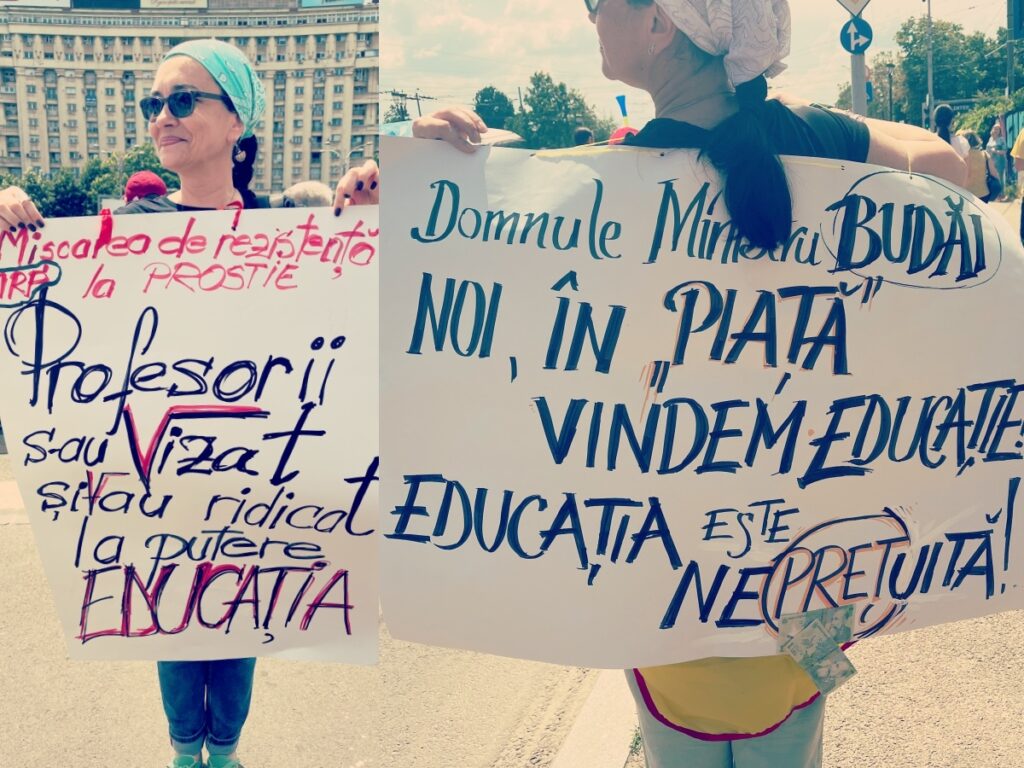 Miscarea de rezistență
la PROSTIE
Profesorii
s-au Vizat
și-au ridicat
la putere
EDUCAȚIA
Domnule Ministru BUDĂI
NOI, ÎN „PIAȚĂ”
VINDEM EDUCAȚIE!
EDUCAȚIA ESTE
NEPREȚUITĂ!